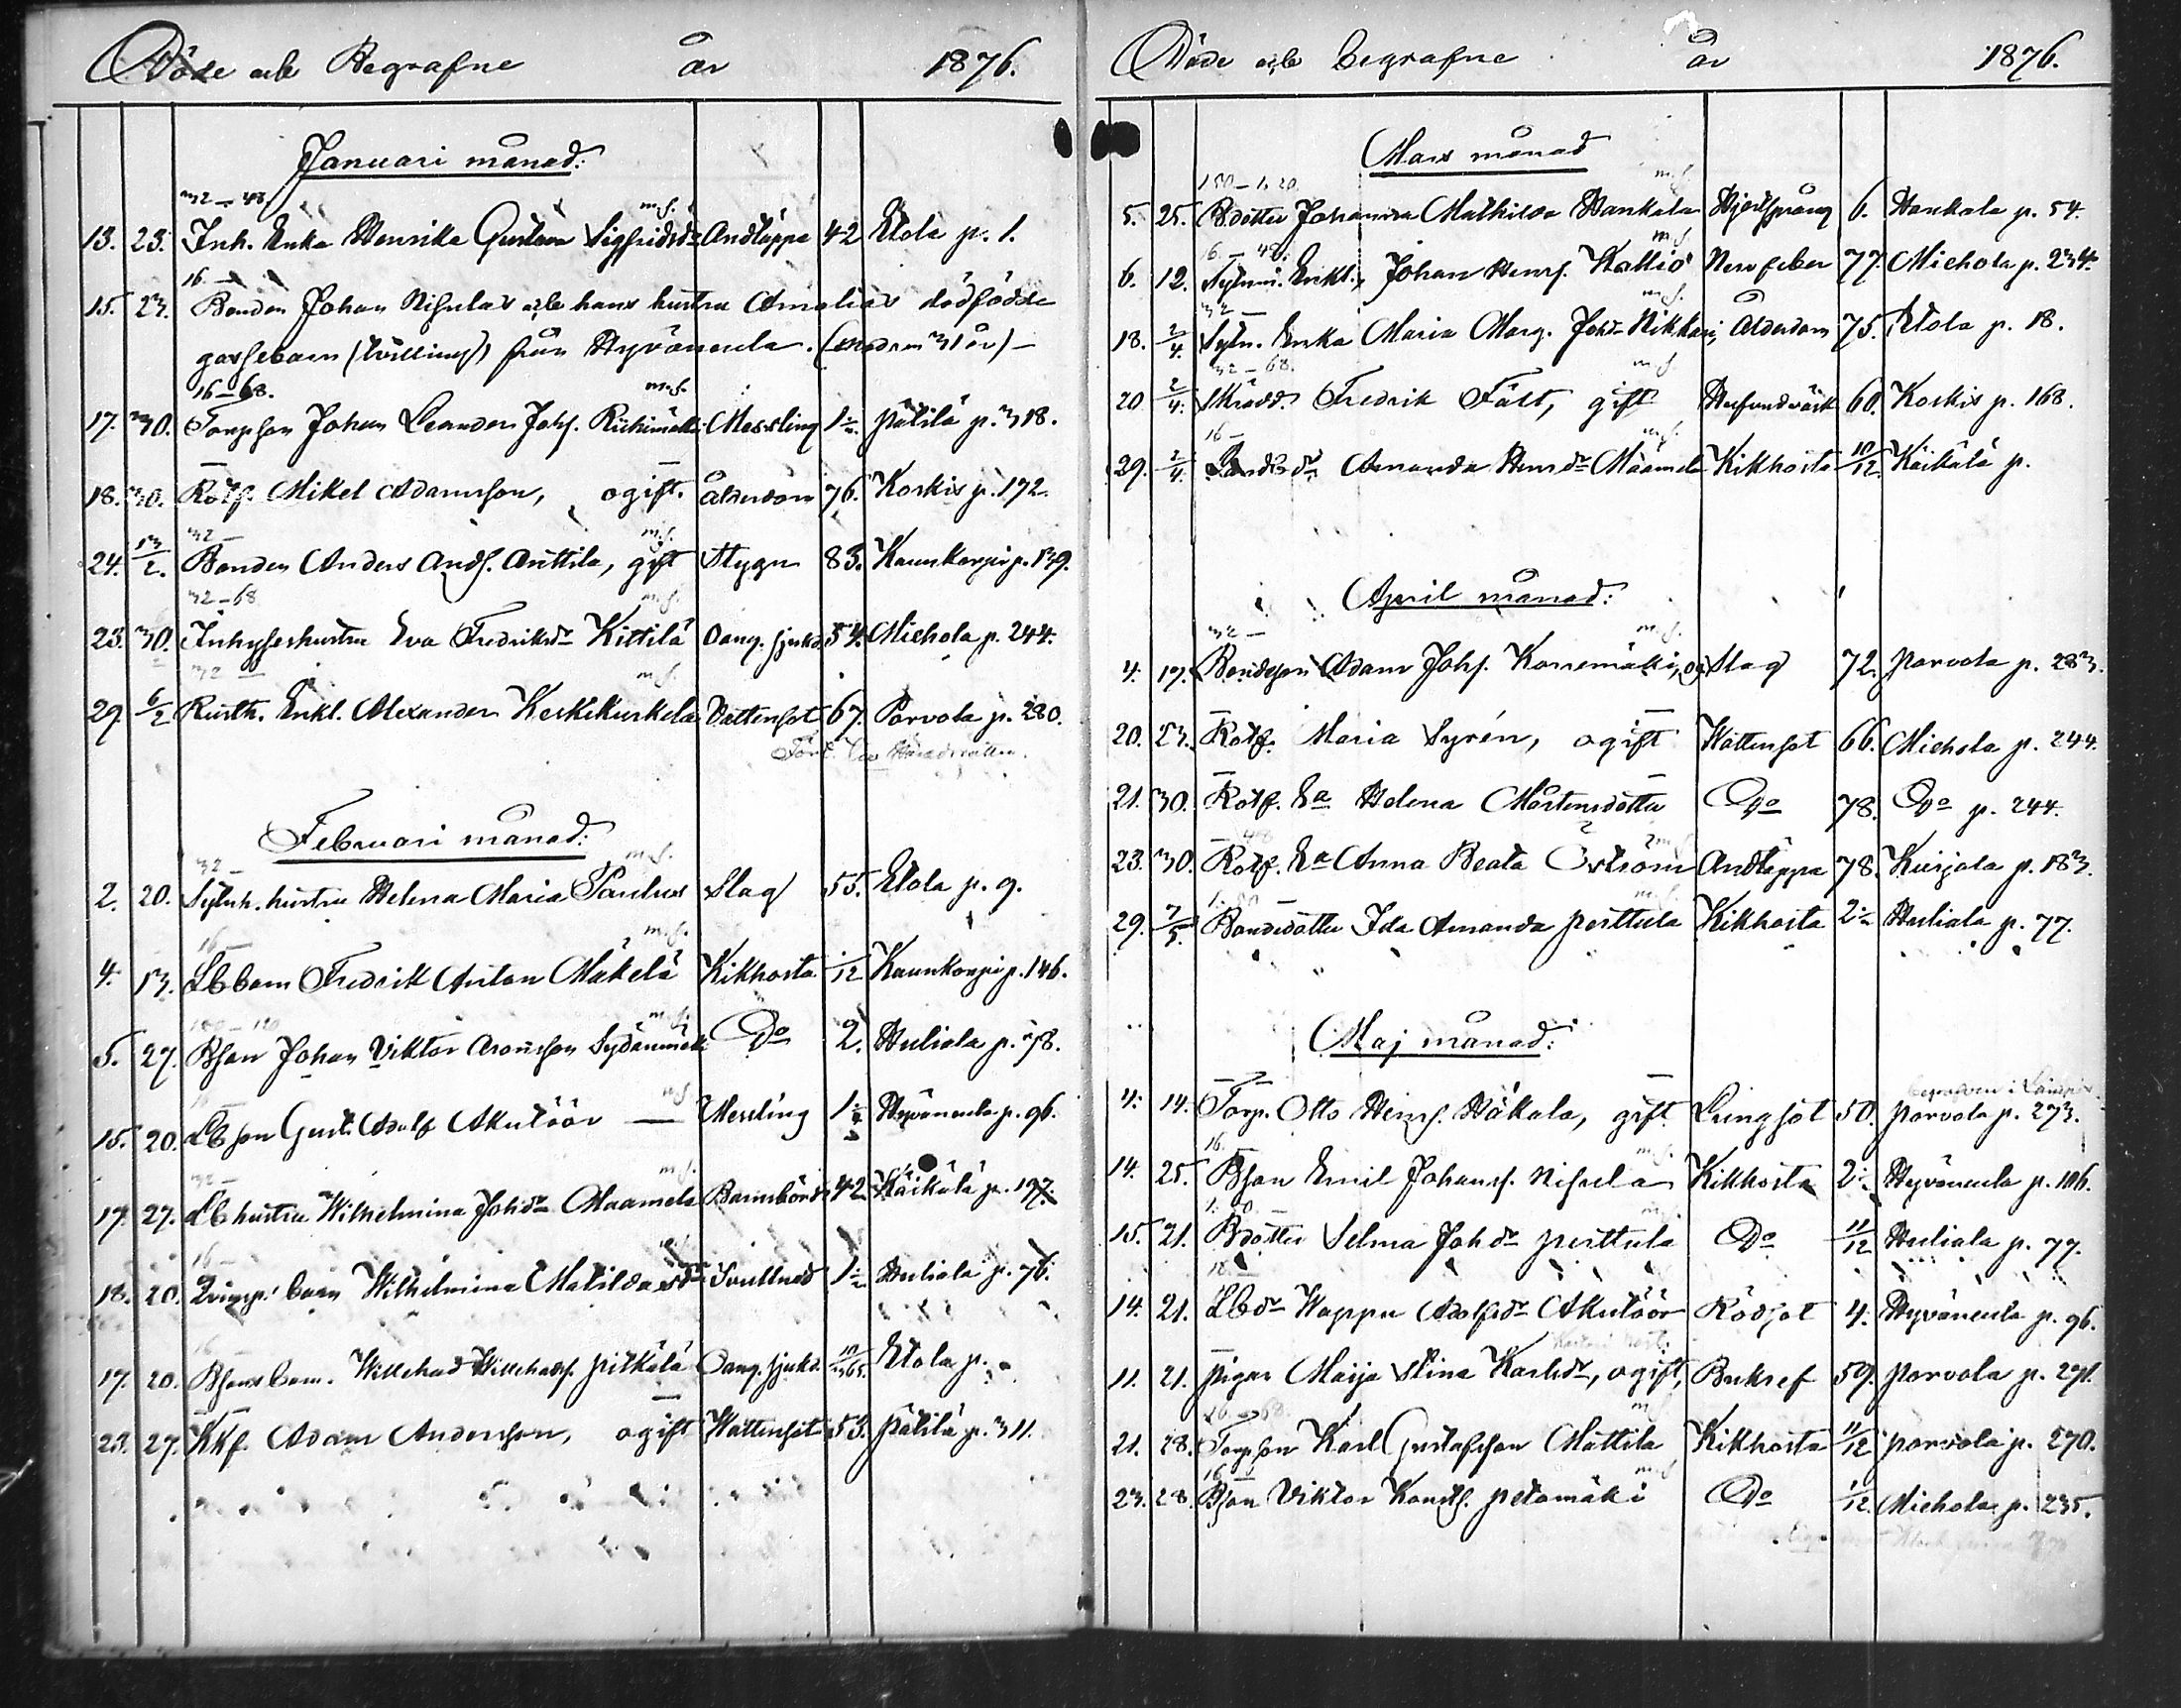 Döde och Begrafne år 1876.
Januari månad:
32 – 48. m.f.
13. 23. Inh. Enka Henrika Gustava Sigfridsdr Andtäppa 42 Etola p. 1.
16 –
15. 23. Bonden Johan Nisulas och hans hustru Amalias dödfödde
gossebarn (tvilling) från Hyväneula. (modren 31 år) –
16 – 68. m.f.
17. 30. Torpson Johan Leander Johs. Riihimäki Messling 1 Pätilä p. 318.
18. 30. Rotf. Mikel Adamsson, ogift. Ålderdom 76. Koskis p. 172.
32 – m.f.
24. 13/2. Bonden Anders Ands. Anttila, gift Stygn 83. Kaunkorpi p. 139.
32 – 68 m.f.
23. 30. Inhyseshustru Eva Fredriksdr Kittilä Oang. sjukd. 54. Miehola p. 244.
32 m.f.
29. 6/2 Rusth. Enkl. Alexander Keskikuskela Vattensot 67. Porvola p. 280.
Februari månad:
32 – m.f.
2. 20. Sytnh. hustru Helena Maria Paulus Slag 55. Etola p. 9.
16 – m.f.
4. 13. Lbbarn Fredrik Anton Mäkelä Kikhosta /12 Kaunkorpi p. 146.
m.f.
5. 27. Bson Johan Viktor Aronsson Sydänmäki Do 2. Huliala p. 78.
16 – m.f.
15. 20. Lbson Gust. Adolf Akutöör — Messling 1 Hyväneula p. 96.
32 – m.f.
17. 27. Lb hustru Wilhelmina Johdr Maamela Barnsbörd 42 Käikälä p. 197.
16 – m.f.
18. 20. barn Wilhelmina Matilda Svullnad 1 Huliala p. 76.
16 –
17. 20. Bsons barn. Willehad Willehads. Pitkälä Oang. sjukd. 10/365. Etola p.
23. 27. Kkf. Adam Andersson, ogift Wattensot 53. Pätilä p. 311.
Döde och begrafne år 1876.
Mars månad
150 – 1, 20. m.f.
5. 25. Bdotter Johanna Mathilda Hankala Hjertsprång 6. Hankala p. 54.
16. – 48. m.f.
6. 12. Sytnin. Enkl., Johan Henrs. Kallio Nervfeber 77. Miehola p. 234.
32 – m.f.
18. 2/4. Sytn. Enka Maria Marg. Johdr Nikkari, Ålderdom 75. Etola p. 18.
32 – 68. m.f.
20 2/4. Skrädd. Fredrik Fält, gift Hufvudvärk 60. Koskis p. 168.
16 – m.f.
29. 2/4. Amanda Henrdr Maamela Kikhosta 10/12. Käikälä p.
April månad:
32 – m.f.
4. 17. Bondeson Adam Johs. Korremäki, og. Slag 72. Porvola p. 283.
20. 23. Rotf. Maria Syrén, ogift Wattensot 66. Miehola p. 244.
21. 30. Rotf. Ea Helena Mårtensdotter Do 78. Do p. 244.
23. 30. Rotf. Ea Anna Beata Öström Andtäppa 78. Kurjala p. 183.
m.f.
29. 7/5. Bondedotter Ida Amanda Perttula Kikhosta 2 Huliala p. 77.
Maj månad:
begraven i Lampis
4. 14. Torp. Otto Henrs. Häkala, gift. Lungsot 50. Porvola p. 273.
16. m.f.
14. 25. Bson Emil Johanss. Nisula Kikhosta 2 Hyväneula p. 106.
15. 21. Bdotter Selma Johdr Perttula Do 11/12 Huliala p. 77.
14. 21. Lbdr Wappu Adolfsdr Akutöör Rödsot 4. Hyväneula p. 96.
11. 21. Pigan Maija Stina Karlsdr, ogift, Bukref 59. Porvola p. 291.
m.f.
21. 28. Torpson Karl Gustafsson Mattila Kikhosta 11/12 Porvola p. 270.
16 m.f.
23. 28. Bson Viktor Konsts. Petamäki Do /12. Miehola p. 235.